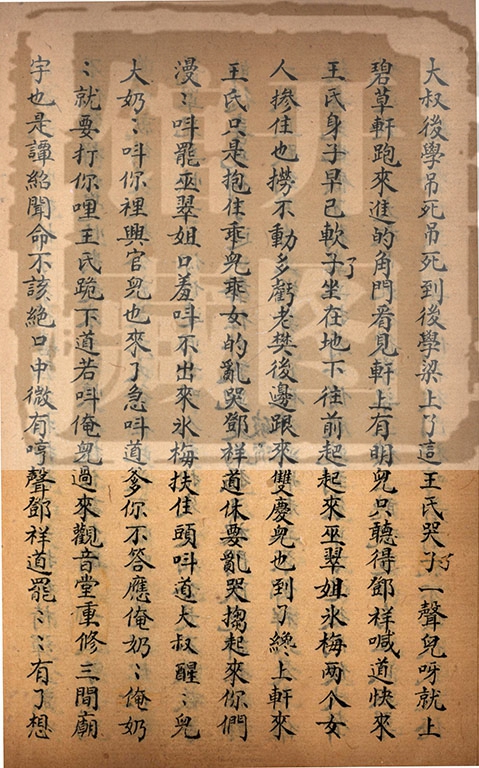 大叔後學吊死吊死到後學梁上了這王氏哭子了一聲兒呀就上
碧草軒跑來進的角門看見軒上有明兒只聽得鄧祥喊道快來
王氏身子早已軟子了坐在地下往前起起來巫翠姐氷梅两个女
人摻住也撈不動多虧老樊後邊跟來雙慶兒也到了纔上軒來
王氏只是抱住乖兒乖女的亂哭鄧祥道休要亂哭搊起來你們
漫〻呌罷巫翠姐口羞呌不出來氷梅扶住頭呌道大叔醒〻兒
大奶〻呌你裡興官兒也來了急呌道爹你不答應俺奶〻俺奶
〻就要打你哩王氏跪下道若呌俺兒過來觀音堂重修三間廟
宇也是譚紹聞命不該絶口中微有哼聲鄧祥道罷〻〻有了想